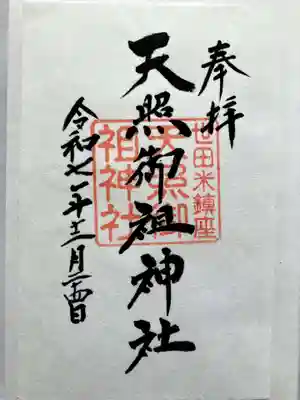 奉拝
世田米鎮座
天照御祖神社
天照御
祖神社
令和七年十二月二十四日